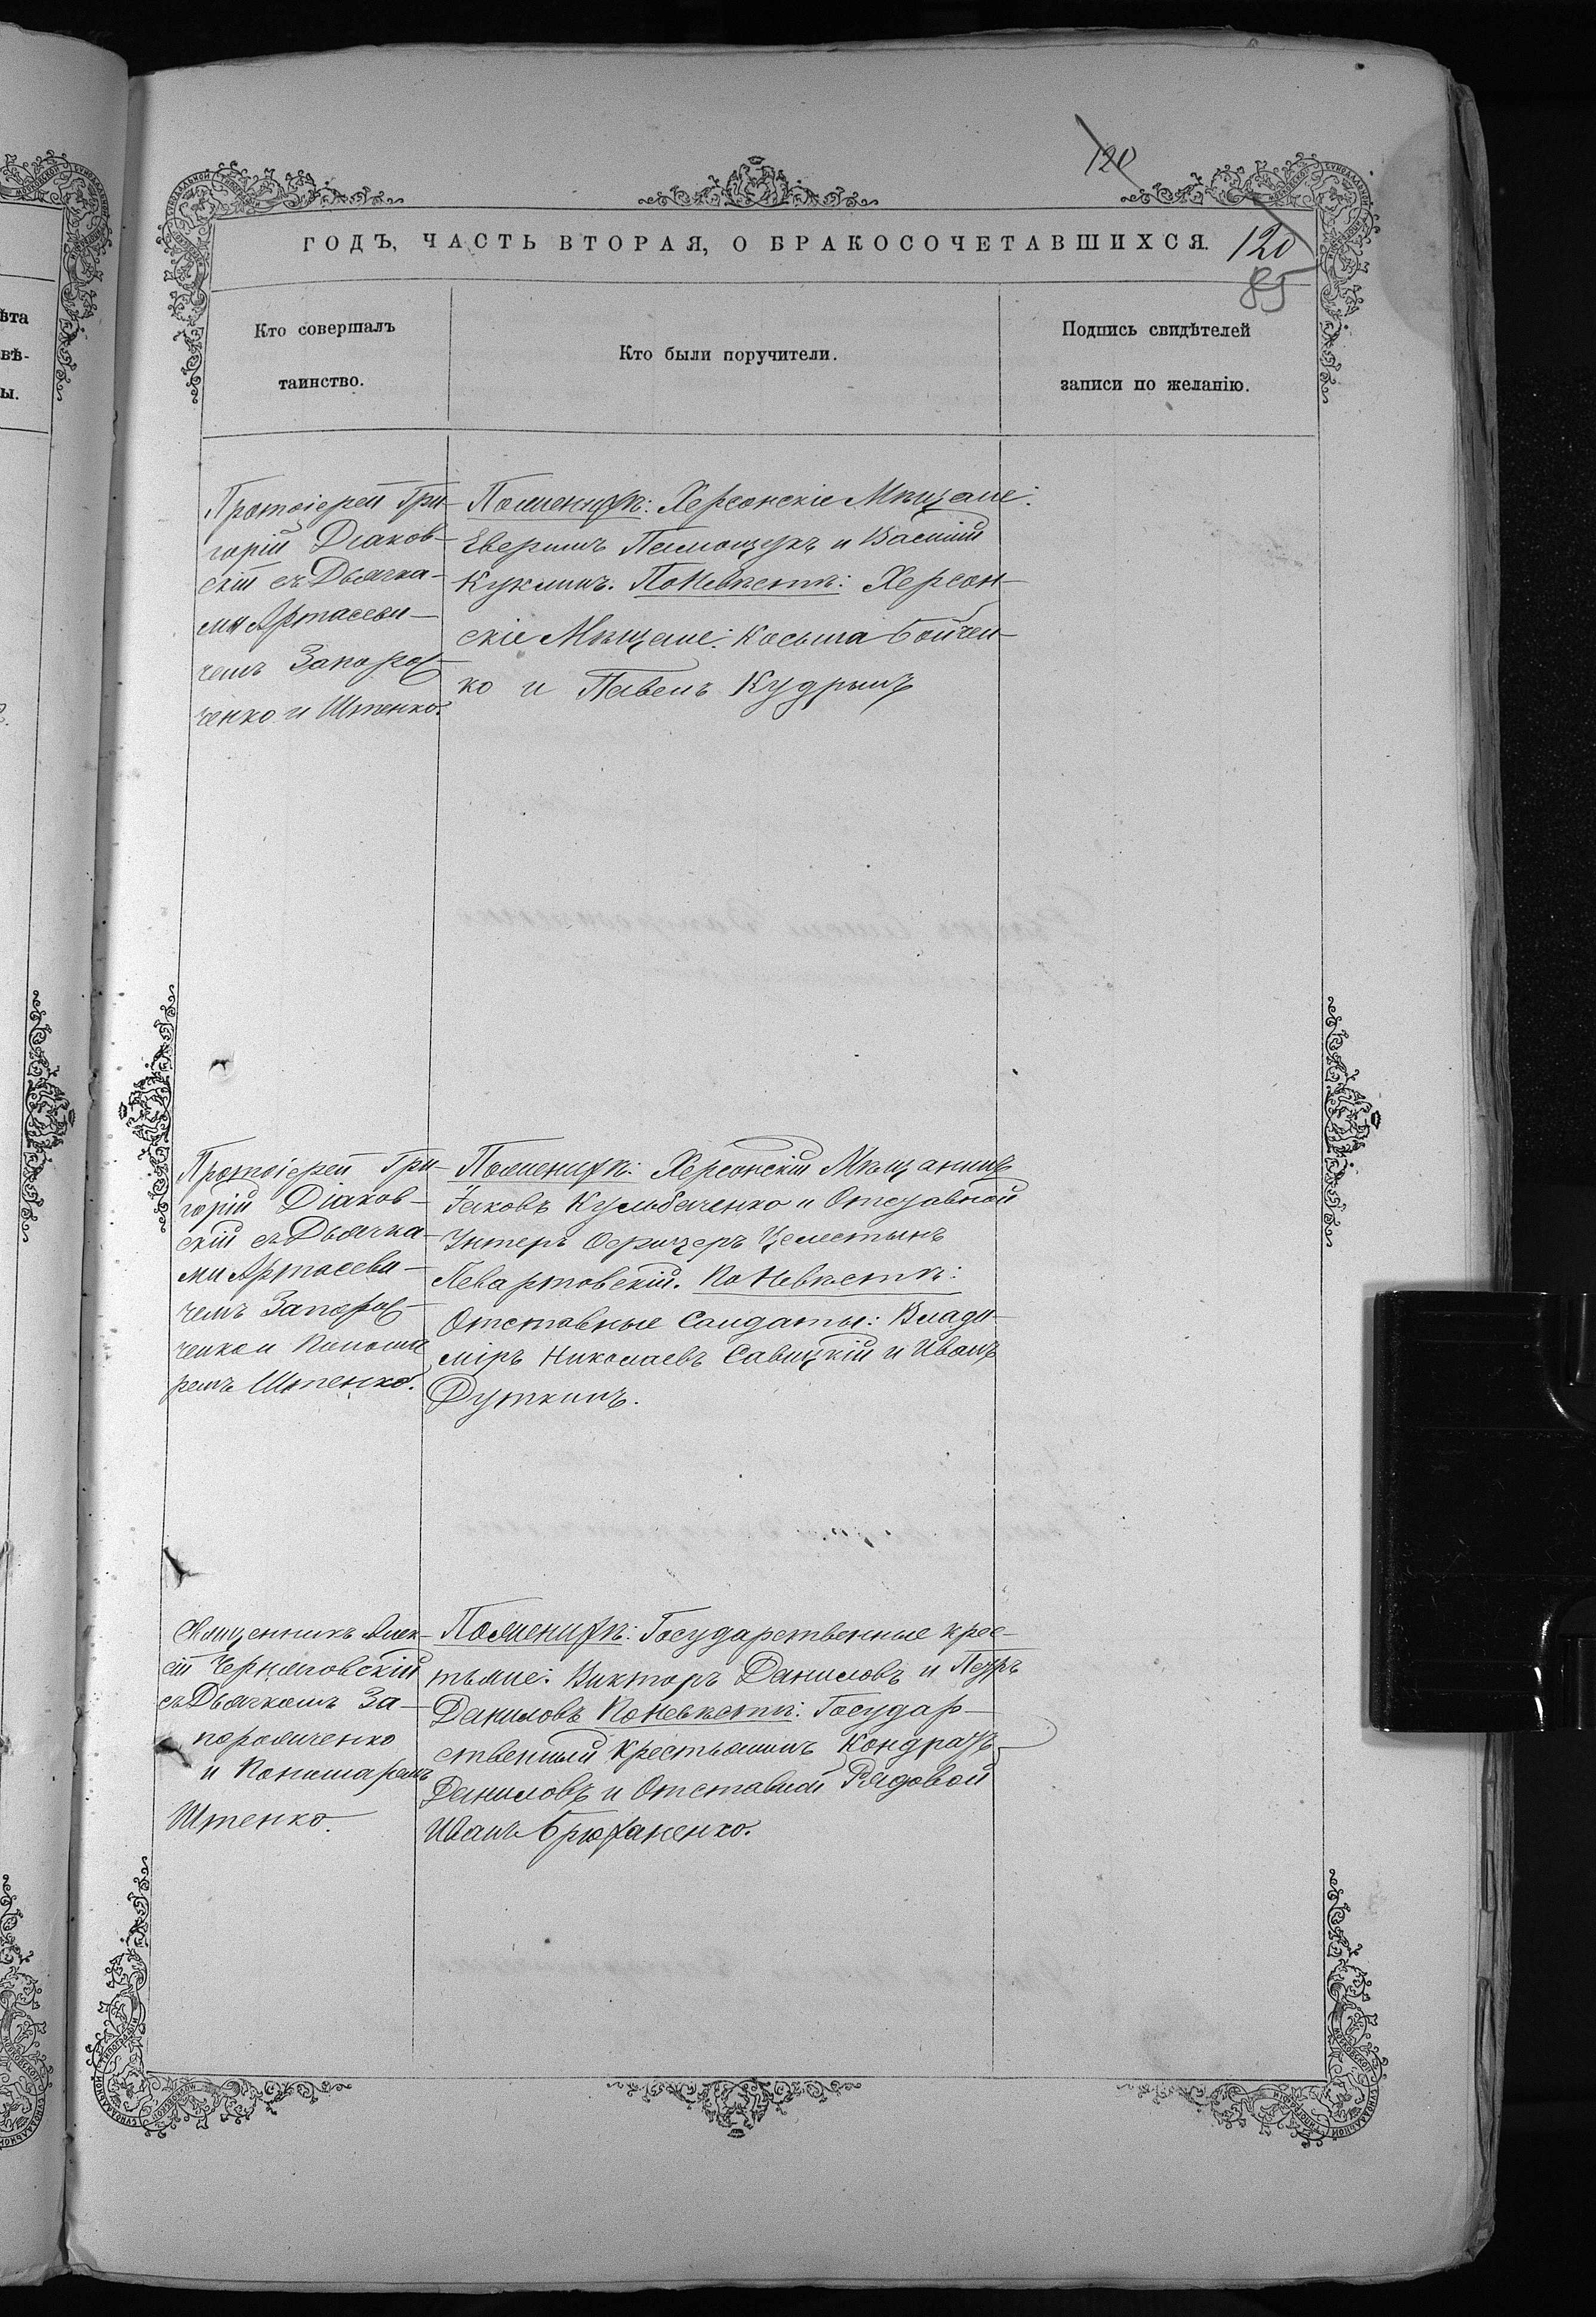 120
ГОДЪ, ЧАСТЬ ВТОРАЯ, О БРАКОСОЧЕТАВШИХСЯ.
120
85
Кто совершалъ
таинство.
Кто были поручители.
Подпись свидѣтелей
записи по желанію.
ѣта
вѣ-
ы.
Протоіерей Гри-
горій Діаков-
скій съ Дьячка-
ми Артасеви-
чемъ Запорож-
ченко и Штенко.
По женихѣ: Херсонскіе Мѣщане:
и Василій
Куклинъ. По невѣстѣ: Херсон-
скіе Мѣщане: Косьма Бойчен-
ко и Павелъ Кудринъ
Протоіерей Гри-
горій Діаков-
скій съ Дьячка-
ми Артасеви-
чемъ Запорож-
ченко и Понома
ремъ Штенко.
По женихѣ: Херсонскій Мѣщанинъ
Іаковъ Кульбаченко и Отставной
Унтеръ Офицеръ Целестынъ
Левартовскій. По невѣстѣ:
Отставные Солдаты: Влади-
міръ Николаевъ Савицкій и Иванъ
Дуткинъ.
Священникъ Алек-
сій Черняговскій
съ Дьячкомъ За-
порожченко
и Пономаремъ
Штенко.
По женихѣ: Государственные крес-
тьяне: Викторъ Даниловъ и Петръ
Даниловъ По невѣстѣ: Государ-
ственный Крестьянинъ Кондратъ
Даниловъ и Отставной Рядовой
Иванъ Брюханенко.